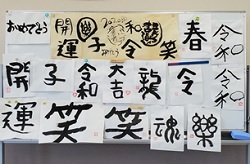 おめでとう
開運 子 和 令 笑
春
令和
令和
開 子 令和 大吉 龍 令
運 笑 笑 魂 樂